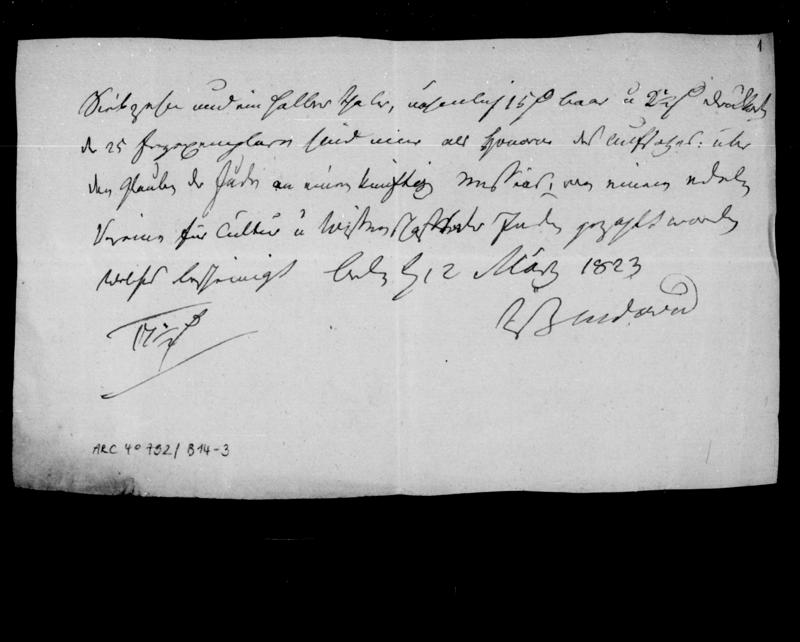 1
Siebzehn und ein halber Thaler, nehmlich 15 baar u 2½
der 25 Freyexemplare sind mir als Honorar des Aufsatzes: über
den Glauben der Juden an einen künftigen Messias, von einem edeln
Vereine für Cultur u Wissenschaft der Juden gezahlt worden
welches bescheinigt Berlin d 12 März 1823
LBendavid
17½
ARC 4º 792/ B14-3